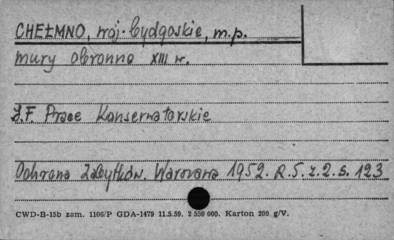 CHEŁMNO, woj. bydgoskie, m.p.
mury obronne XIII w.
J.F. Prace Konserwatorskie
Ochrona Zabytków. Warszawa 1952. R.5. z.2. s. 123
CWD-B-15b zam. 1106/P GDA-1479 11.5.59. 2 550 000. Karton 200 g/V.